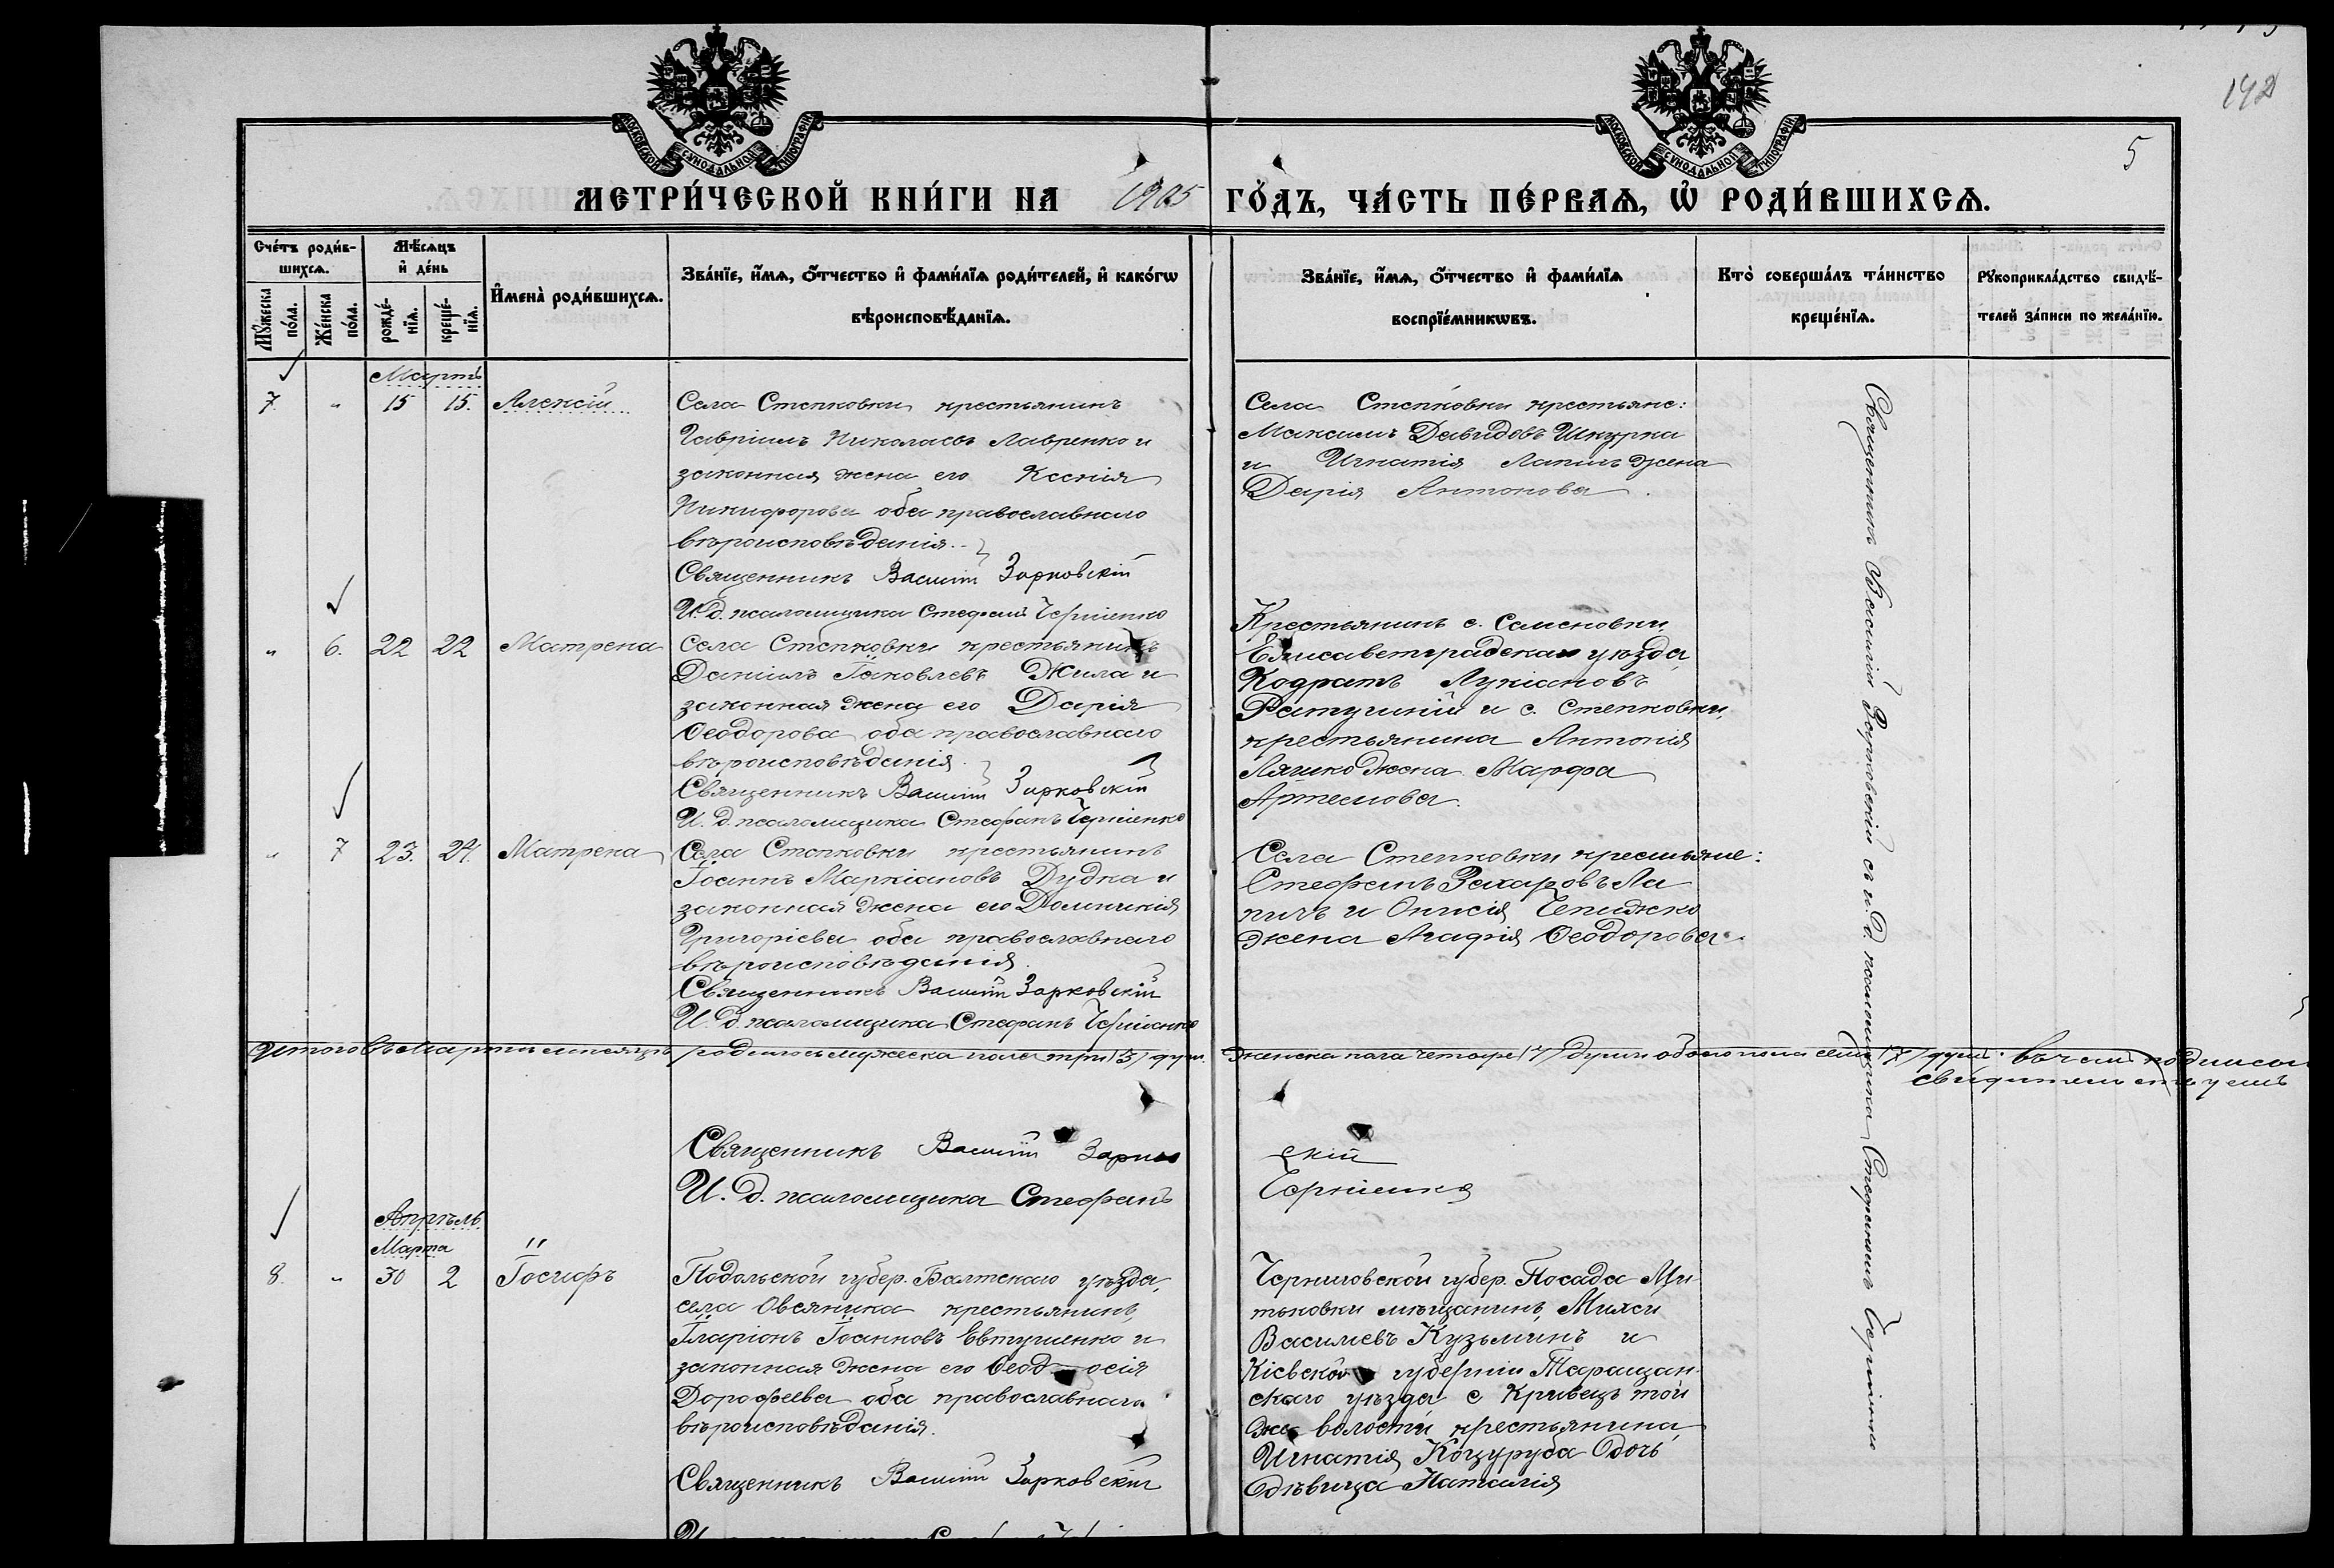 142
5
МОСКОВСКОЙ СѴНОДАЛЬНОЙ ТИПОГРАФІИ
МОСКОВСКОЙ СѴНОДАЛЬНОЙ ТИПОГРАФІИ
МЕТРИ́ЧЕСКОЙ КНИ́ГИ НА 1905 ГО́ДЪ, ЧА́СТЬ ПЕ́РВАѦ, Ѡ҆ РОДИ́ВШИХСѦ.
Сче́тъ роди́в-
шихсѧ.
Мꙋ́жеска
по́ла.
Же́нска
по́ла.
Мѣ́сѧцъ
и҆ де́нь
рожде́-
нїѧ.
креще́-
нїѧ.
И҆мена̀ роди́вшихсѧ.
Зва́нїе, и҆́мѧ, ѻ҆́тчество и҆ фами́лїѧ роди́телей, и҆ како́гѡ
вѣроисповѣ́данїѧ.
Зва́нїе, и҆́мѧ, ѻ҆́тчество и҆ фами́лїѧ
воспрїе́мникѡвъ.
Кто̀ соверша́лъ та́инство
креще́нїѧ.
Рꙋкоприкла́дство свидѣ́-
телей за́писи по жела́нїю.
Мартъ
7. " 15 15. Алексій
Села Степковки крестьянинъ
Гавріилъ Николаевъ Лавренко и
законная жена его Ксенія
Никифорова оба православнаго
вѣроисповѣданія.
Священникъ Василій Зарковскій
И. д. псаломщика Стефанъ Черніенко
Села Степковки крестьяне:
Максимъ Давидовъ Шкурка
и Игнатія Лапинъ жена
Дарія Антонова.
" 6. 22 22 Матрена
Села Степковки крестьянинъ
Даніилъ Іаковлевъ Жила и
законная жена его Дарія
Ѳеодорова оба православнаго
вѣроисповѣданія.
Священникъ Василій Зарковскій
И. д. псаломщика Стефанъ Черніенко
Крестьянинъ с. Семеновки
Елисаветградскаго уѣзда
Кодратъ Лукіановъ
и с. Степковки,
крестьянина Антонія
Ляшко жена Марфа
Артемова.
" 7 23. 24. Матрена
Села Степковки крестьянинъ
Іоаннъ Маркіановъ Дудка и
законная жена его Домникія
Григоріева оба православнаго
вѣроисповѣданія.
Священникъ Василій Зарковскій
И. д. псаломщика Стефанъ Черніенко
Села Степковки крестьяне:
Стефанъ Захаровъ Ла
пинъ и Онисія Чепижко
жена Агафія Ѳеодорова.
Итого въ Мартѣ мѣсяцѣ родилось мужеска пола три (3) душ. женска пола четыре (4) души обоего пола семь (7) душъ. въ чемъ подписомъ
свидѣтельствуемъ
Священникъ Василій Зарковскій
И. д. псаломщика Стефанъ Черніенко
Апрѣль
Марта
8. " 30 2 Іосифъ
Подольской губер. Балтскаго уѣзда,
села Овсяника крестьянинъ,
Иларіонъ Іоанновъ Евтушенко и
законная жена его Ѳеодосія
Дорофеева оба православнаго
вѣроисповѣданія.
Священникъ Василій Зарковскій
Черниговской губер. Посада Ми
тьковки мѣщанинъ,
Василіевъ Кузьминъ и
Кіевской губерніи Таращан-
скаго уѣзда с Кривецъ той
же волости крестьянина
Игнатія Коцуруба дочь
дѣвица Наталія
Священникъ Василій Зарковскій съ и. д. псаломщика Стефаномъ Черніенко